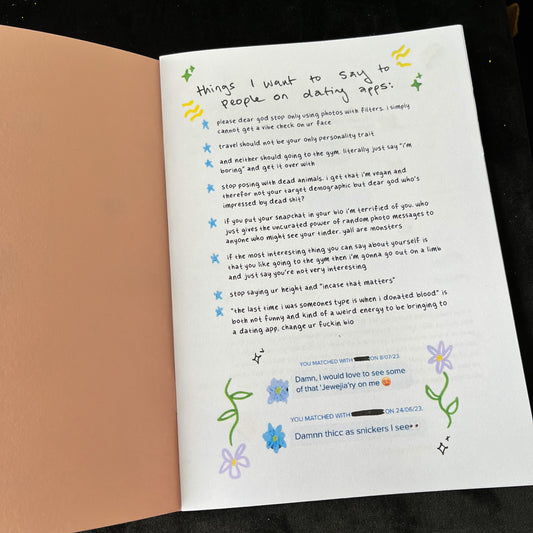 things I want to say to
people on dating apps:
please dear god stop only using photos with filters. i simply
cannot get a vibe check on ur face
travel should not be your only personality trait
and neither should going to the gym. literally just say "i'm
boring" and get it over with
stop posing with dead animals. i get that i'm vegan and
therefor not your target demographic but dear god who's
impressed by dead shit?
if you put your snapchat in your bio i'm terrified of you. who
just gives the uncurated power of random photo messages to
anyone who might see your tinder. yall are monsters
if the most interesting thing you can say about yourself is
that you like going to the gym then i'm gonna go out on a limb
and just say you're not very interesting
stop saying ur height and "incase that matters"
"the last time i was someones type is when i donated blood" is
both not funny and kind of a weird energy to be bringing to
a dating app. change ur fuckin bio
YOU MATCHED WITH ON 8/07/23
Damn, I would love to see some
of that 'Jewejia'ry on me 🥵
YOU MATCHED WITH ON 24/06/23.
Damnn thicc as snickers I see👀